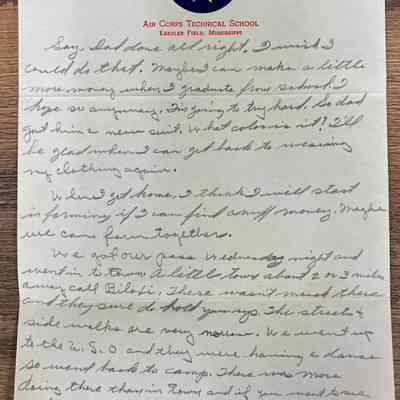 AIR CORPS TECHNICAL SCHOOL
KEESLER FIELD, MISSISSIPPI
Say, Dad done all right. I wish I
could do that. Maybe I can make a little
more money when I graduate from school. I
hope so anyway. I'm going to try hard. So dad
got him a new suit. What color is it? I'll
be glad when I can get back to wearing
my clothing again.
When I get home, I think I will start
in farming if I can find enuff money. Maybe
we can farm together.
We got our pass Wednesday night and
went in to town. A little town about 2 or 3 miles
away call Biloxi. There wasn't much there
and they sure do hold you up. The streets &
side walks are very narrow. We went up
to the U.S.O and they were having a dance
so went back to camp. There was more
doing there than in town and if you want to see